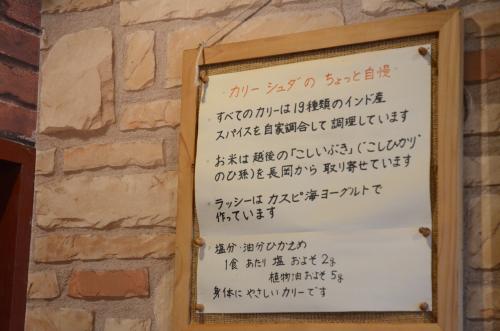 ・カリー シュダの ちょっと自慢・
・すべてのカリーは19種類のインド産
スパイスを自家調合して調理しています
・お米は越後の「こしいぶき」(“こしひかり”
のひ孫)を長岡から取り寄せています
・ラッシーはカスピ海ヨーグルトで
作っています
・塩分・油分ひかえめ
1食あたり 塩 およそ2g
植物油およそ5g
身体に やさしいカリーです